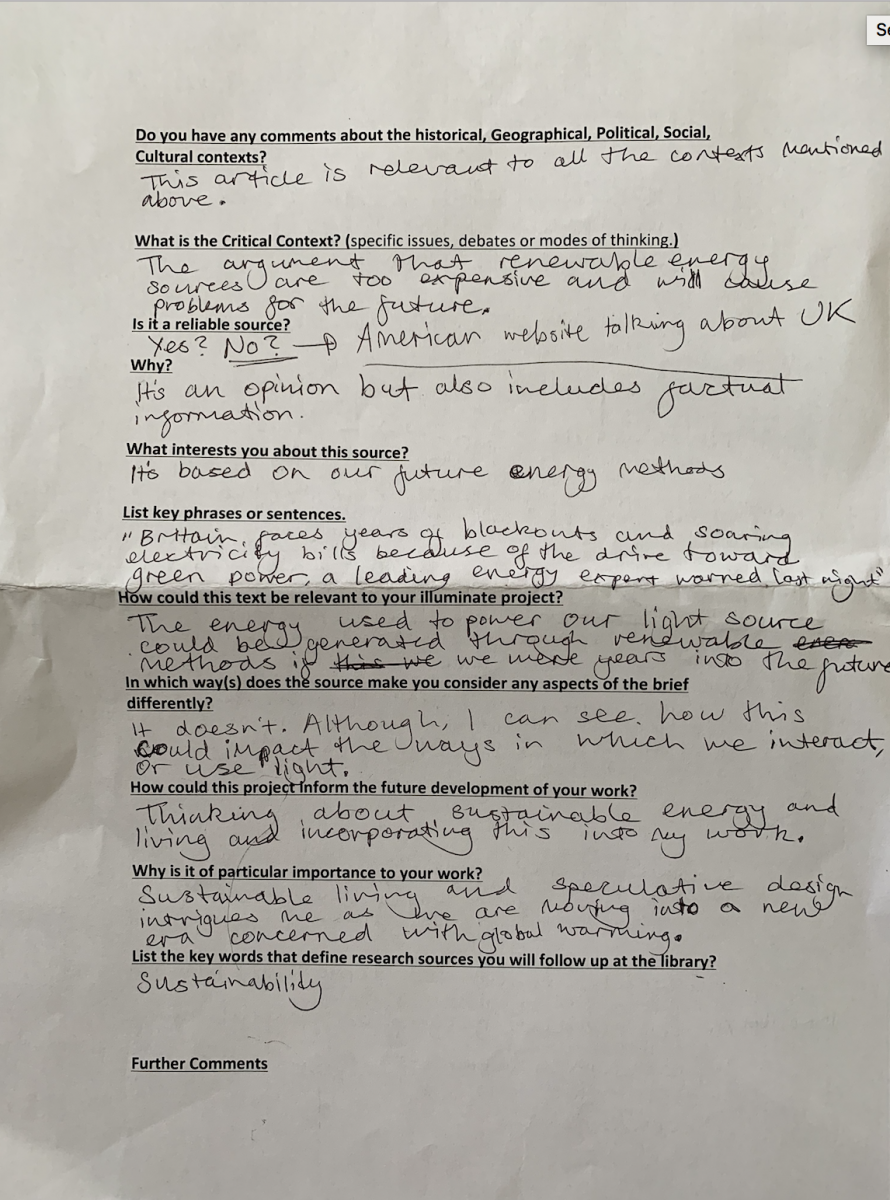 Se
Do you have any comments about the historical, Geographical, Political, Social,
Cultural contexts?
This article is relevant to all the contexts mentioned
above.
What is the Critical Context? (specific issues, debates or modes of thinking.)
The argument that renewable energy
sources are too expensive and will cause
problems for the future.
Is it a reliable source?
Yes? No? → American website talking about UK
Why?
It's an opinion but also includes factual
information.
What interests you about this source?
It's based on our future energy methods
List key phrases or sentences.
"Britain faces years of blackouts and soaring
electricity bills because of the drive toward
green power, a leading energy expert warned last night"
How could this text be relevant to your illuminate project?
The energy used to power our light source
could be generated through renewable
methods if we were years into the future
In which way(s) does the source make you consider any aspects of the brief
differently?
It doesn't. Although, I can see how this
could impact the ways in which we interact,
or use light.
How could this project inform the future development of your work?
Thinking about sustainable energy and
living and incorporating this into my work.
Why is it of particular importance to your work?
Sustainable living and speculative design
intrigues me as we are moving into a new
era concerned with global warming.
List the key words that define research sources you will follow up at the library?
Sustainability
Further Comments